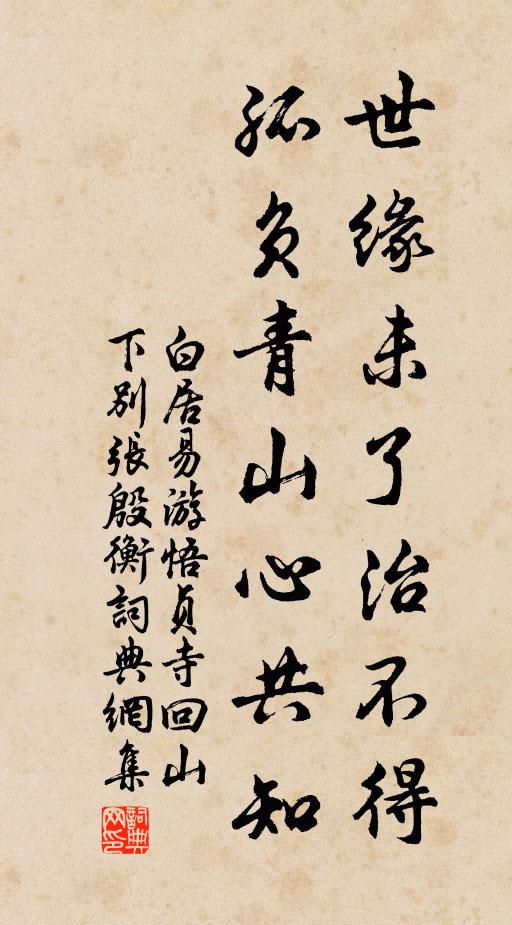 世缘未了治不得
孤负青山心共知
白居易游悟貞寺回山
下别張殷衡詞典網集
詞典网印